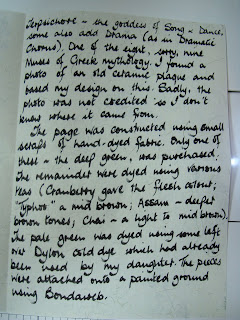 Terpsichore - the goddess of Song & Dance,
some also add Drama (as in Dramatic
Chorus). One of the eight, sorry, nine
Muses of Greek mythology. I found a
photo of an old ceramic plaque and
based my design on this. Sadly, the
photo was not credited so I don't
know where it came from.
The page was constructed using small
scraps of hand-dyed fabric. Only one of
these - the deep green, was purchased.
The remainder were dyed using various
teas (Cranberry gave the flesh colour;
"Typhoo" a mid brown; Assam - deeper
brown tones; Chai - a light to mid brown)
The pale green was dyed using some left
over Dylon cold dye which had already
been used by my daughter. The pieces
were attached onto a painted ground
using Bondaweb.